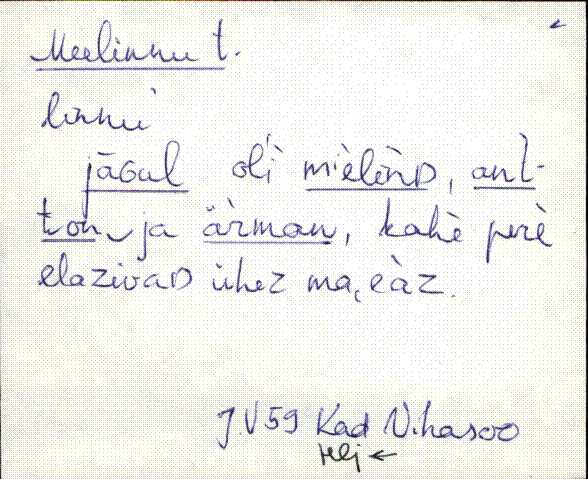 Meelinnu t.
linnu
jäGul oli mièlènD, ant-
ton ja ärman, kahè perè
elazivaD ühez majeàz.
J.V 59 Kad V.hasoo
Hlj ←